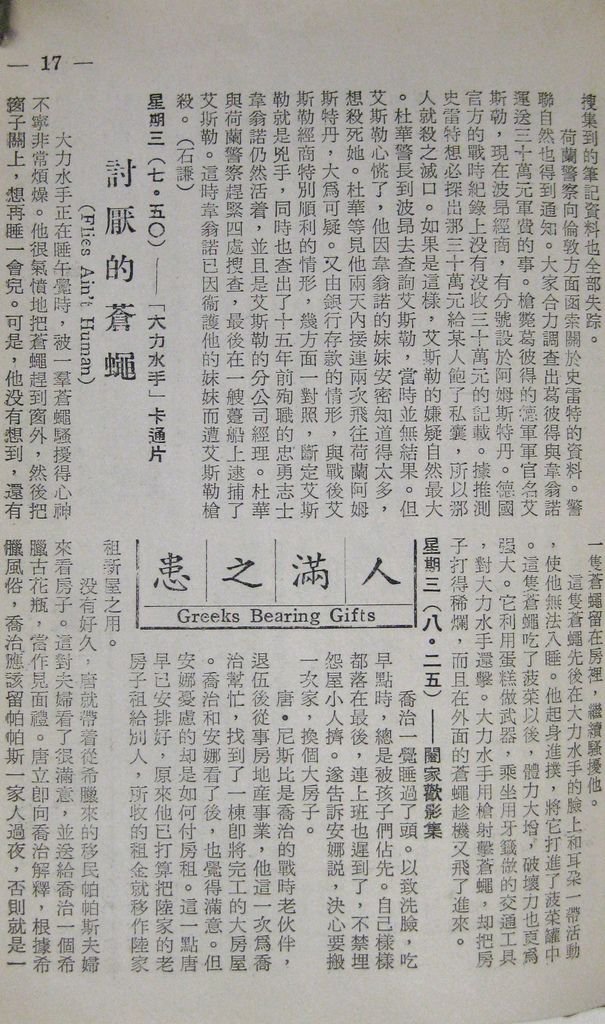 — 17 —
搜集到的筆記資料也全部失踪。
荷蘭警察向倫敦方面函索關於史雷特的資料。警
聯自然也得到通知。大家合力調查出葛彼得與韋翁諾
運送三十萬元軍費的事。槍斃葛彼得的德軍軍官名艾
斯勒，現在波昂經商，有分號設於阿姆斯特丹。德國
官方的戰時紀錄上没有没收三十萬元的記載。據推測
史雷特想必探出那三十萬元給某人飽了私囊，所以那
人就殺之滅口。如果是這樣，艾斯勒的嫌疑自然最大
。杜華警長到波昂去查詢艾斯勒，當時並無結果。但
艾斯勒心慌了，他因韋翁諾的妹妹安密知道得太多，
想殺死她。杜華等見他兩天內接連兩次飛往荷蘭阿姆
斯特丹，大爲可疑。又由銀行存款的情形，與戰後艾
斯勒經商特別順利的情形，幾方面一對照，斷定艾斯
勒就是兇手，同時也查出了十五年前殉職的忠勇志士
韋翁諾仍然活着，並且是艾斯勒的分公司經理。杜華
與荷蘭警察趕緊四處搜查，最後在一艘躉船上逮捕了
艾斯勒。這時韋翁諾已因衞護他的妹妹而遭艾斯勒槍
殺。（石謙）
星期三（七·五〇）——「大力水手」卡通片
討厭的蒼蠅
(Flies Ain't Human)
大力水手正在睡午覺時，被一羣蒼蠅騷擾得心神
不寧非常煩燥。他很氣憤地把蒼蠅趕到窗外，然後把
窗子關上，想再睡一會完。可是，他没有想到，還有
一隻蒼蠅留在房裡，繼續騷擾他。
這隻蒼蠅先後在大力水手的臉上和耳朶一帶活動
，使他無法入睡。他起身進撲，將它打進了菠菜罐中
。這隻蒼蠅吃了菠菜以後，體力大增，破壞力也更爲
强大。它利用蛋糕做武器，乘坐用牙籤做的交通工具
，對大力水手還擊。大力水手用槍射擊蒼蠅，却把房
子打得稀爛，而且在外面的蒼蠅趁機又飛了進來。
星期三（八·二五）——闔家歡影集
人滿之患
Greeks Bearing Gifts
喬治一覺睡過了頭。以致洗臉，吃
早點時，總是被孩子們佔先。自己樣樣
都落在最後，連上班也遲到了，不禁埋
怨屋小人擠。遂告訴安娜説，決心要搬
一次家，換個大房子。
唐·尼斯比是喬治的戰時老伙伴，
退伍後從事房地産事業，他這一次爲喬
治幫忙，找到了一棟卽將完工的大房屋
。喬治和安娜看了後，也覺得滿意。但
安娜憂慮的却是如何付房租。這一點唐
早已安排好，原來他已打算把陸家的老
房子租給別人，所收的租金就移作陸家
租新屋之用。
没有好久，唐就帶着從希臘來的移民帕帕斯夫婦
來看房子。這對夫婦看了很滿意，並送給喬治一個希
臘古花瓶，當作見面禮。唐立卽向喬治解釋，根據希
臘風俗，喬治應該留帕帕斯一家人過夜，否則就是一